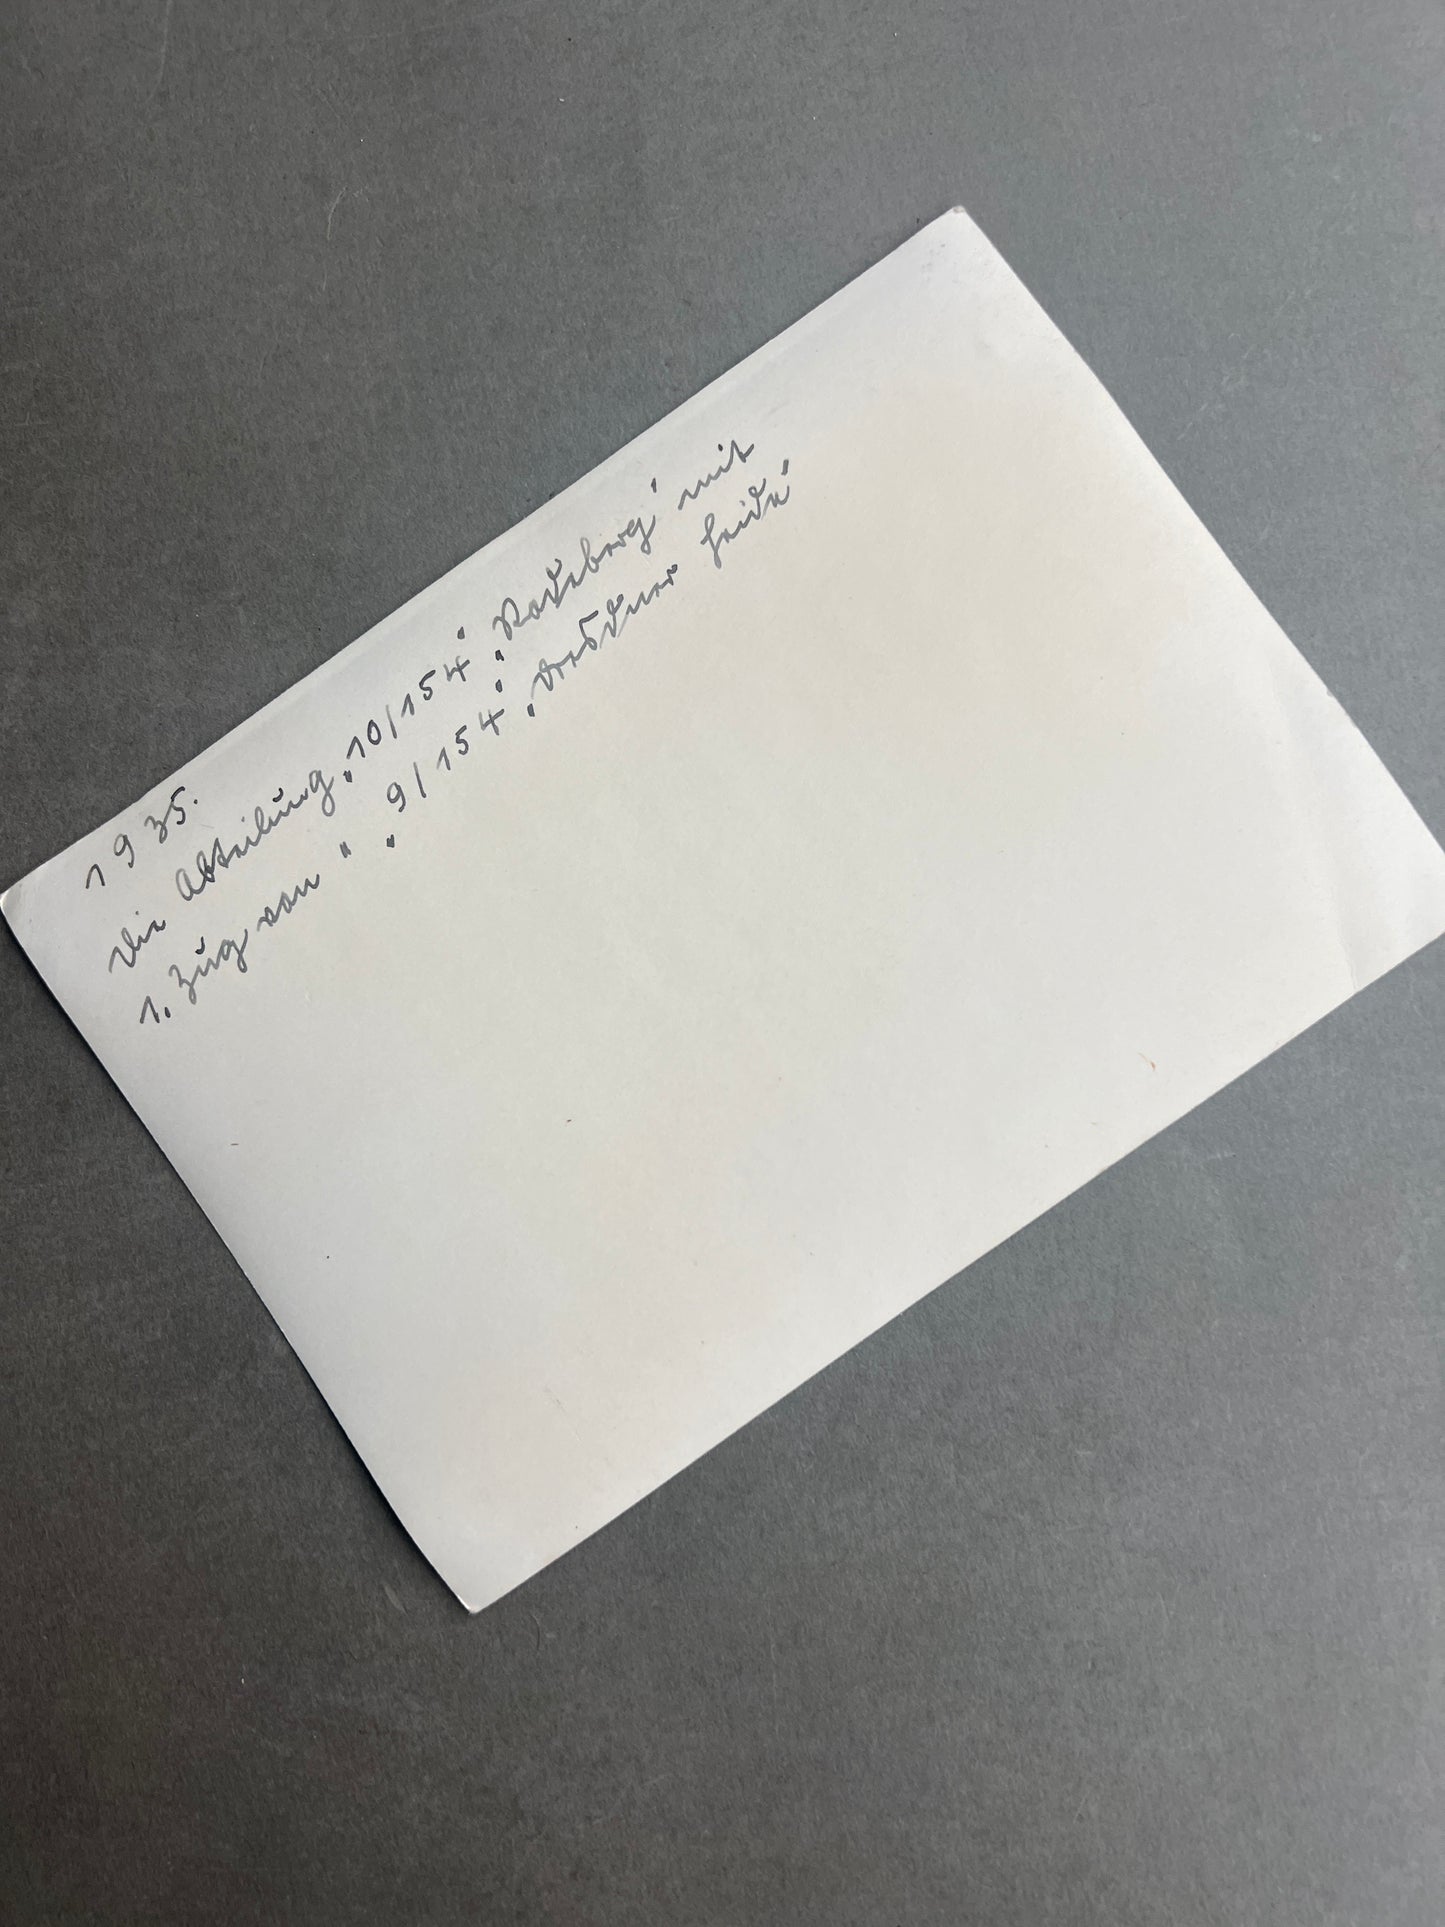 1935.
Die Abteilung „10/154“ „Radeberg“ mit
1. Zug von " „9/154“ „Dresdner Heide“